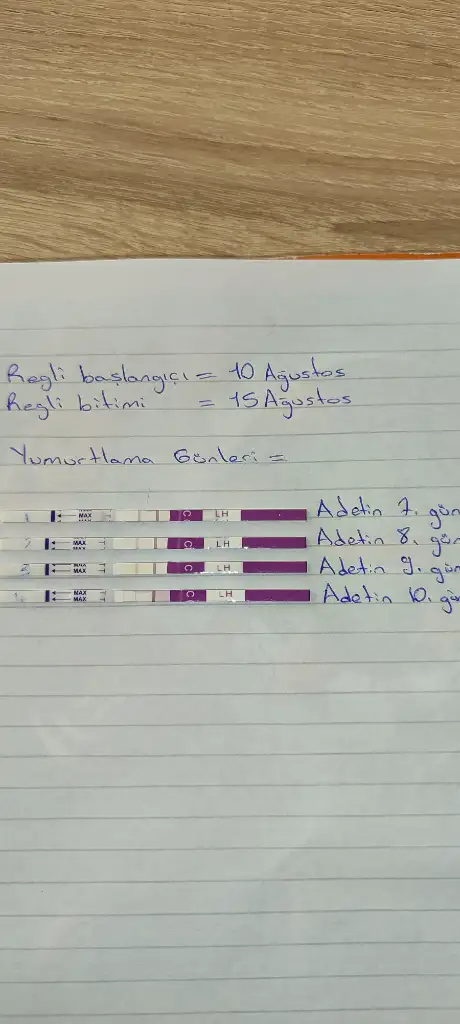 Regli başlangıçı = 10 Ağustos
Regli bitimi = 15 Ağustos
Yumurtlama Günleri =
1 MAX C LH Adetin 7. gün
2 MAX C LH Adetin 8. gün
MAX MAX C LH Adetin 9. gün
MAX MAX C LH Adetin 10. gün